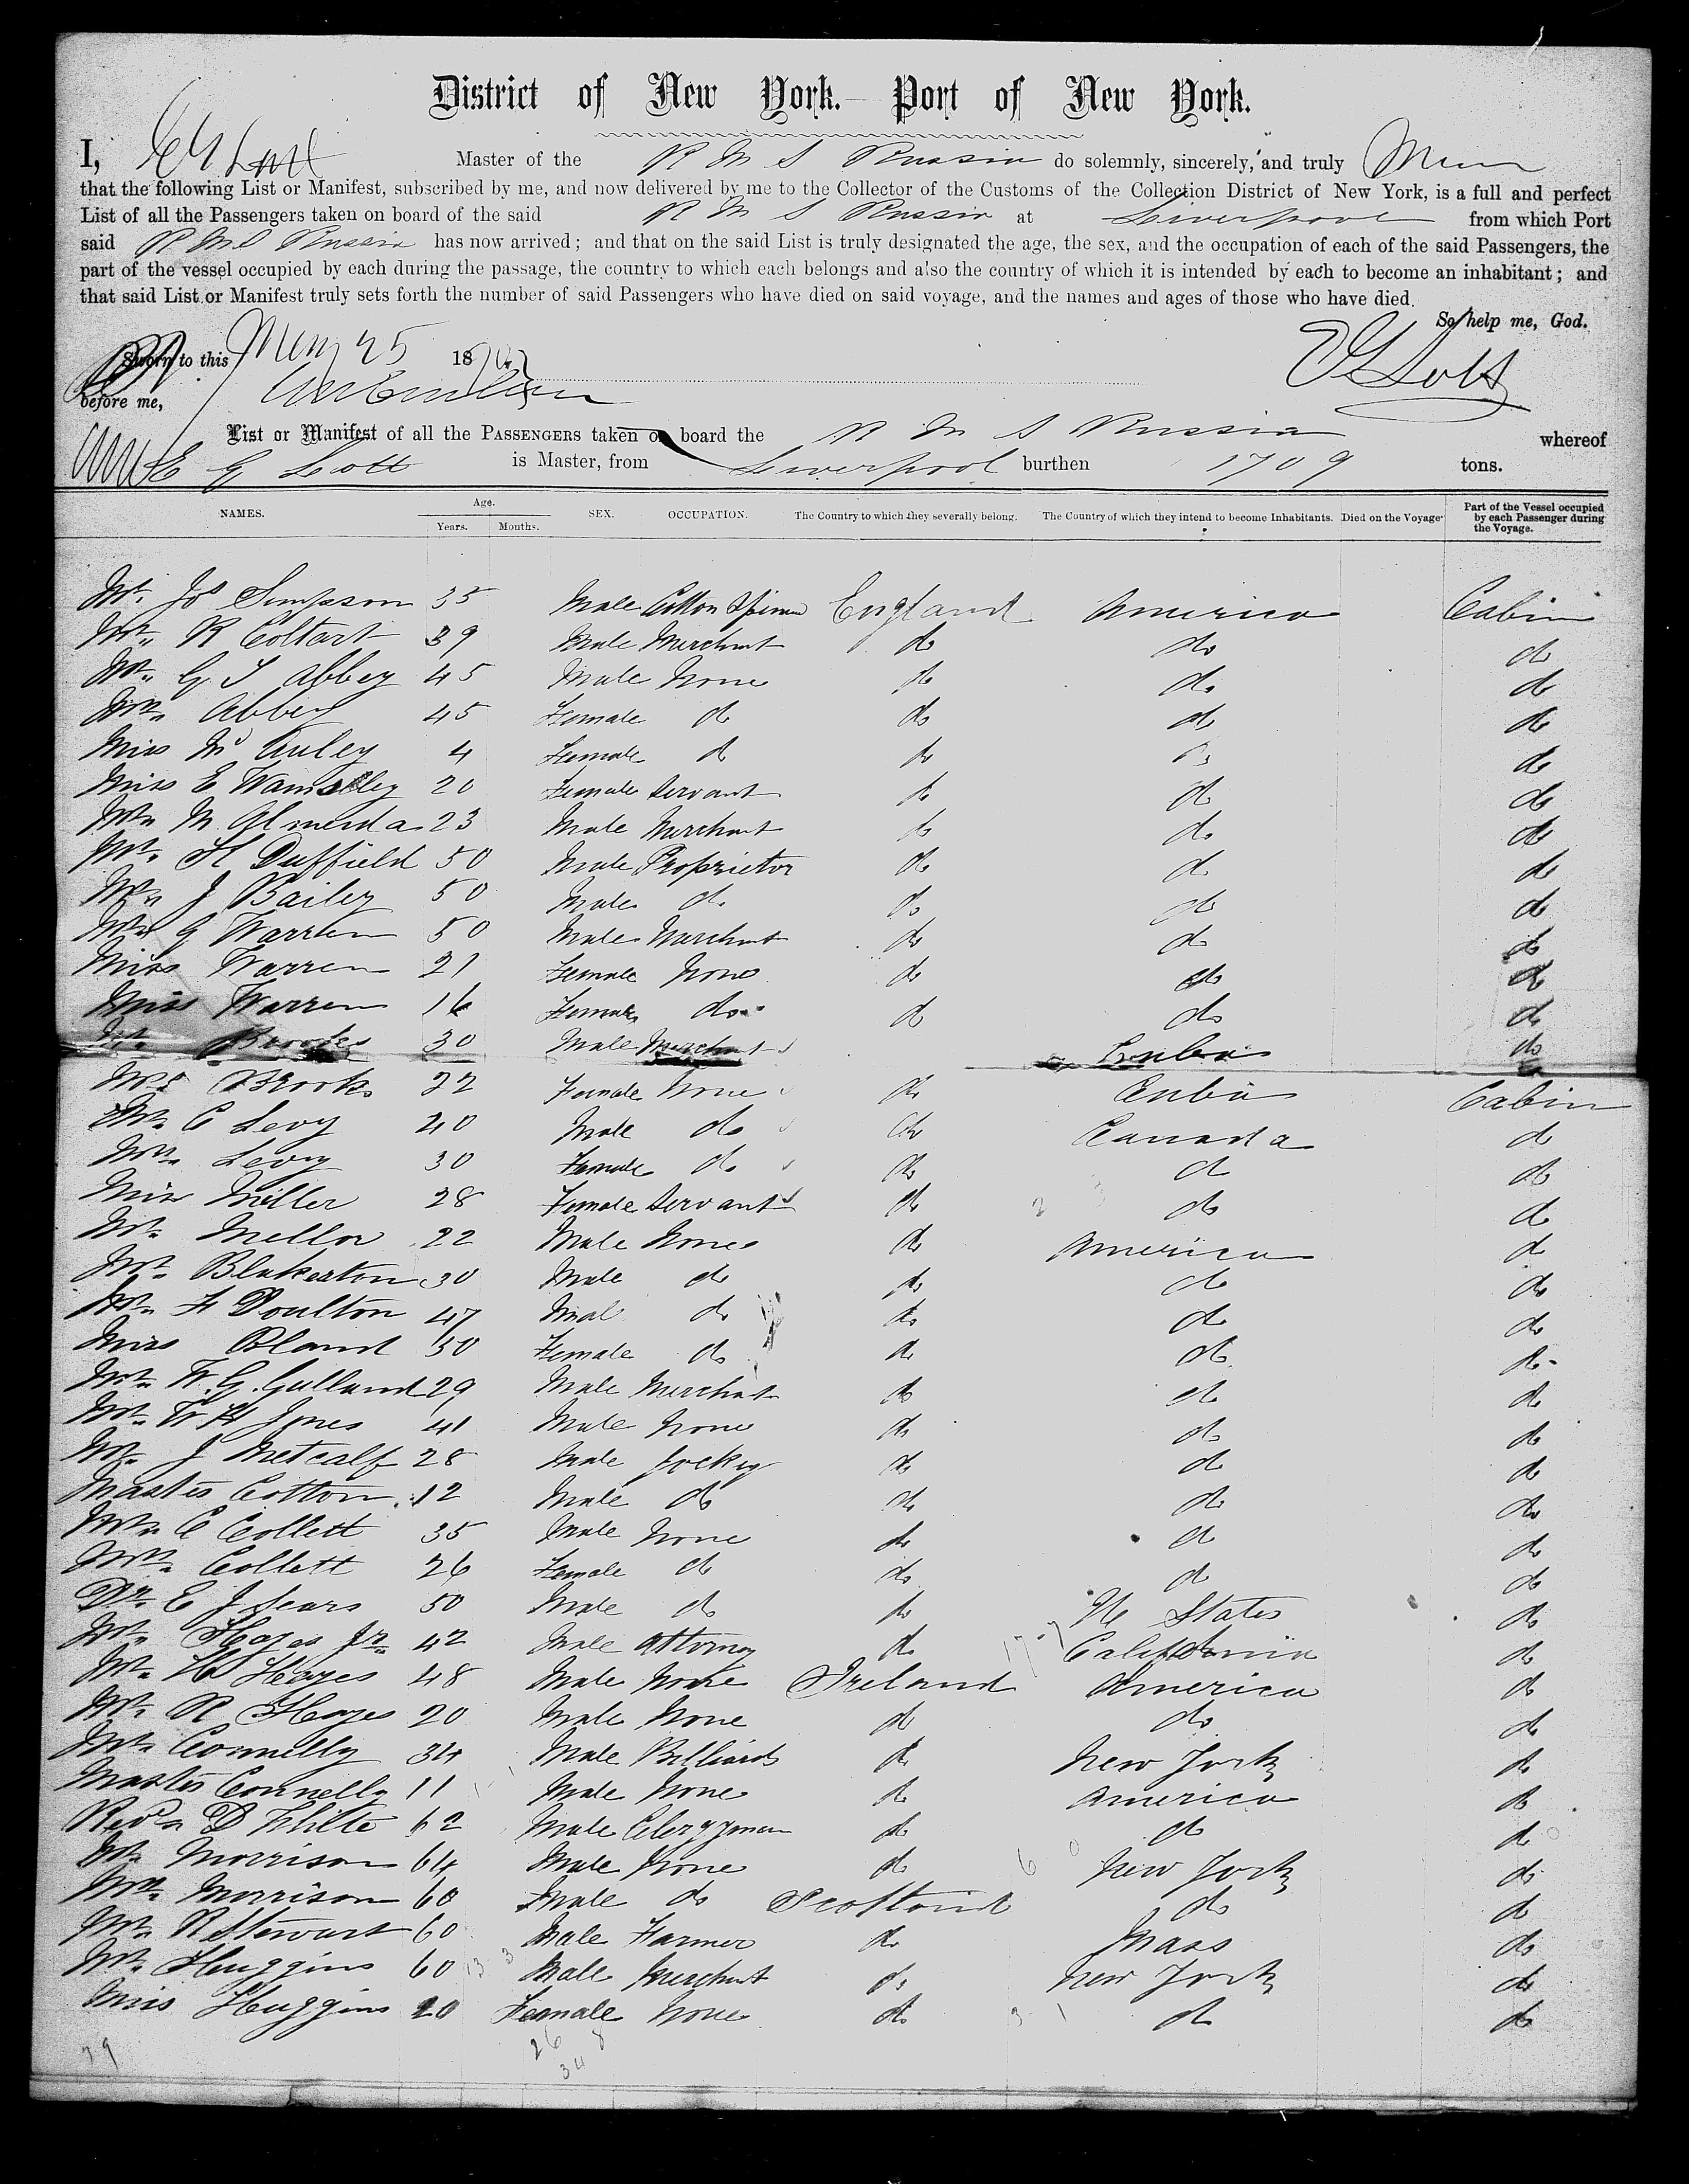 District of New York. Port of New York.
I, E G Lott Master of the R M S Russia do solemnly, sincerely, and truly
that the following List or Manifest, subscribed by me, and now delivered by me to the Collector of the Customs of the Collection District of New York, is a full and perfect
List of all the Passengers taken on board of the said R M S Russia at Liverpool from which Port
said R M S Russia has now arrived; and that on the said List is truly designated the age, the sex, and the occupation of each of the said Passengers, the
part of the vessel occupied by each during the passage, the country to which each belongs and also the country of which it is intended by each to become an inhabitant; and
that said List or Manifest truly sets forth the number of said Passengers who have died on said voyage, and the names and ages of those who have died.
So help me, God.
Sworn to this May 25 18 E G Lott
before me,
List or Manifest of all the PASSENGERS taken on board the R M S Russia whereof
E G Lott is Master, from Liverpool burthen 1709 tons.
NAMES. Age. Years. Months. SEX. OCCUPATION. The Country to which they severally belong. The Country of which they intend to become Inhabitants. Died on the Voyage Part of the Vessel occupied by each Passenger during the Voyage.
Mr. Jos Simpson 35 Male Cotton Spinner England America Cabin
Mr. R Coltart 39 Male Merchant do do do
Mr. G. S Abbey 45 Male None do do do
Mrs. Abbey 45 Female do do do do
Miss Mc Auley 4 Female do do do do
Miss E Wamsley 20 Female Servant do do do
Mr. M Almeida 23 Male Merchant do do do
Mr. H Duffield 50 Male Proprietor do do do
Mr. J Bailey 50 Male do do do do
Mr. G Warren 50 Male Merchant do do do
Miss Warren 21 Female None do do do
Miss Warren 16 Female do do do do
Mr. Brooks 30 Male Merchant Cuba do
Mrs Brooks 22 Female None do Cuba Cabin
Mr. C Levy 40 Male do do Canada do
Mrs. Levy 30 Female do do do do
Miss Miller 28 Female Servant do do do
Mr. Mellor 22 Male None do America do
Mr. Blakeston 30 Male do do do do
Mr. F Doulton 47 Male do do do do
Miss Bland 30 Female do do do do
Mr. W. G. Gulland 29 Male Merchant do do do
Mr. W H Jones 41 Male None do do do
Mr. J Metcalf 28 Male Jockey do do do
Master Cotton 12 Male do do do do
Mr. C Collett 35 Male None do do do
Mrs. Collett 26 Female do do do do
Dr. E J Sears 50 Male do do U States do
Mr. Hayes Jr. 42 Male Attorney do California do
Mr. H Hayes 48 Male None Ireland America do
Mr. R Hayes 20 Male None do do do
Mr. Connelly 34 Male Billiards do New York do
Master Connelly 11 Male None do America do
Revd. D White 62 Male Clergyman do do do
Mr. Morrison 64 Male None do New York do
Mrs. Morrison 60 Male do Scotland do do
Mr. R Stewart 60 Male Farmer do Mass do
Mr. Huggins 60 Male Merchant do New York do
Miss Huggins 20 Female None do do do
39 26 8
34